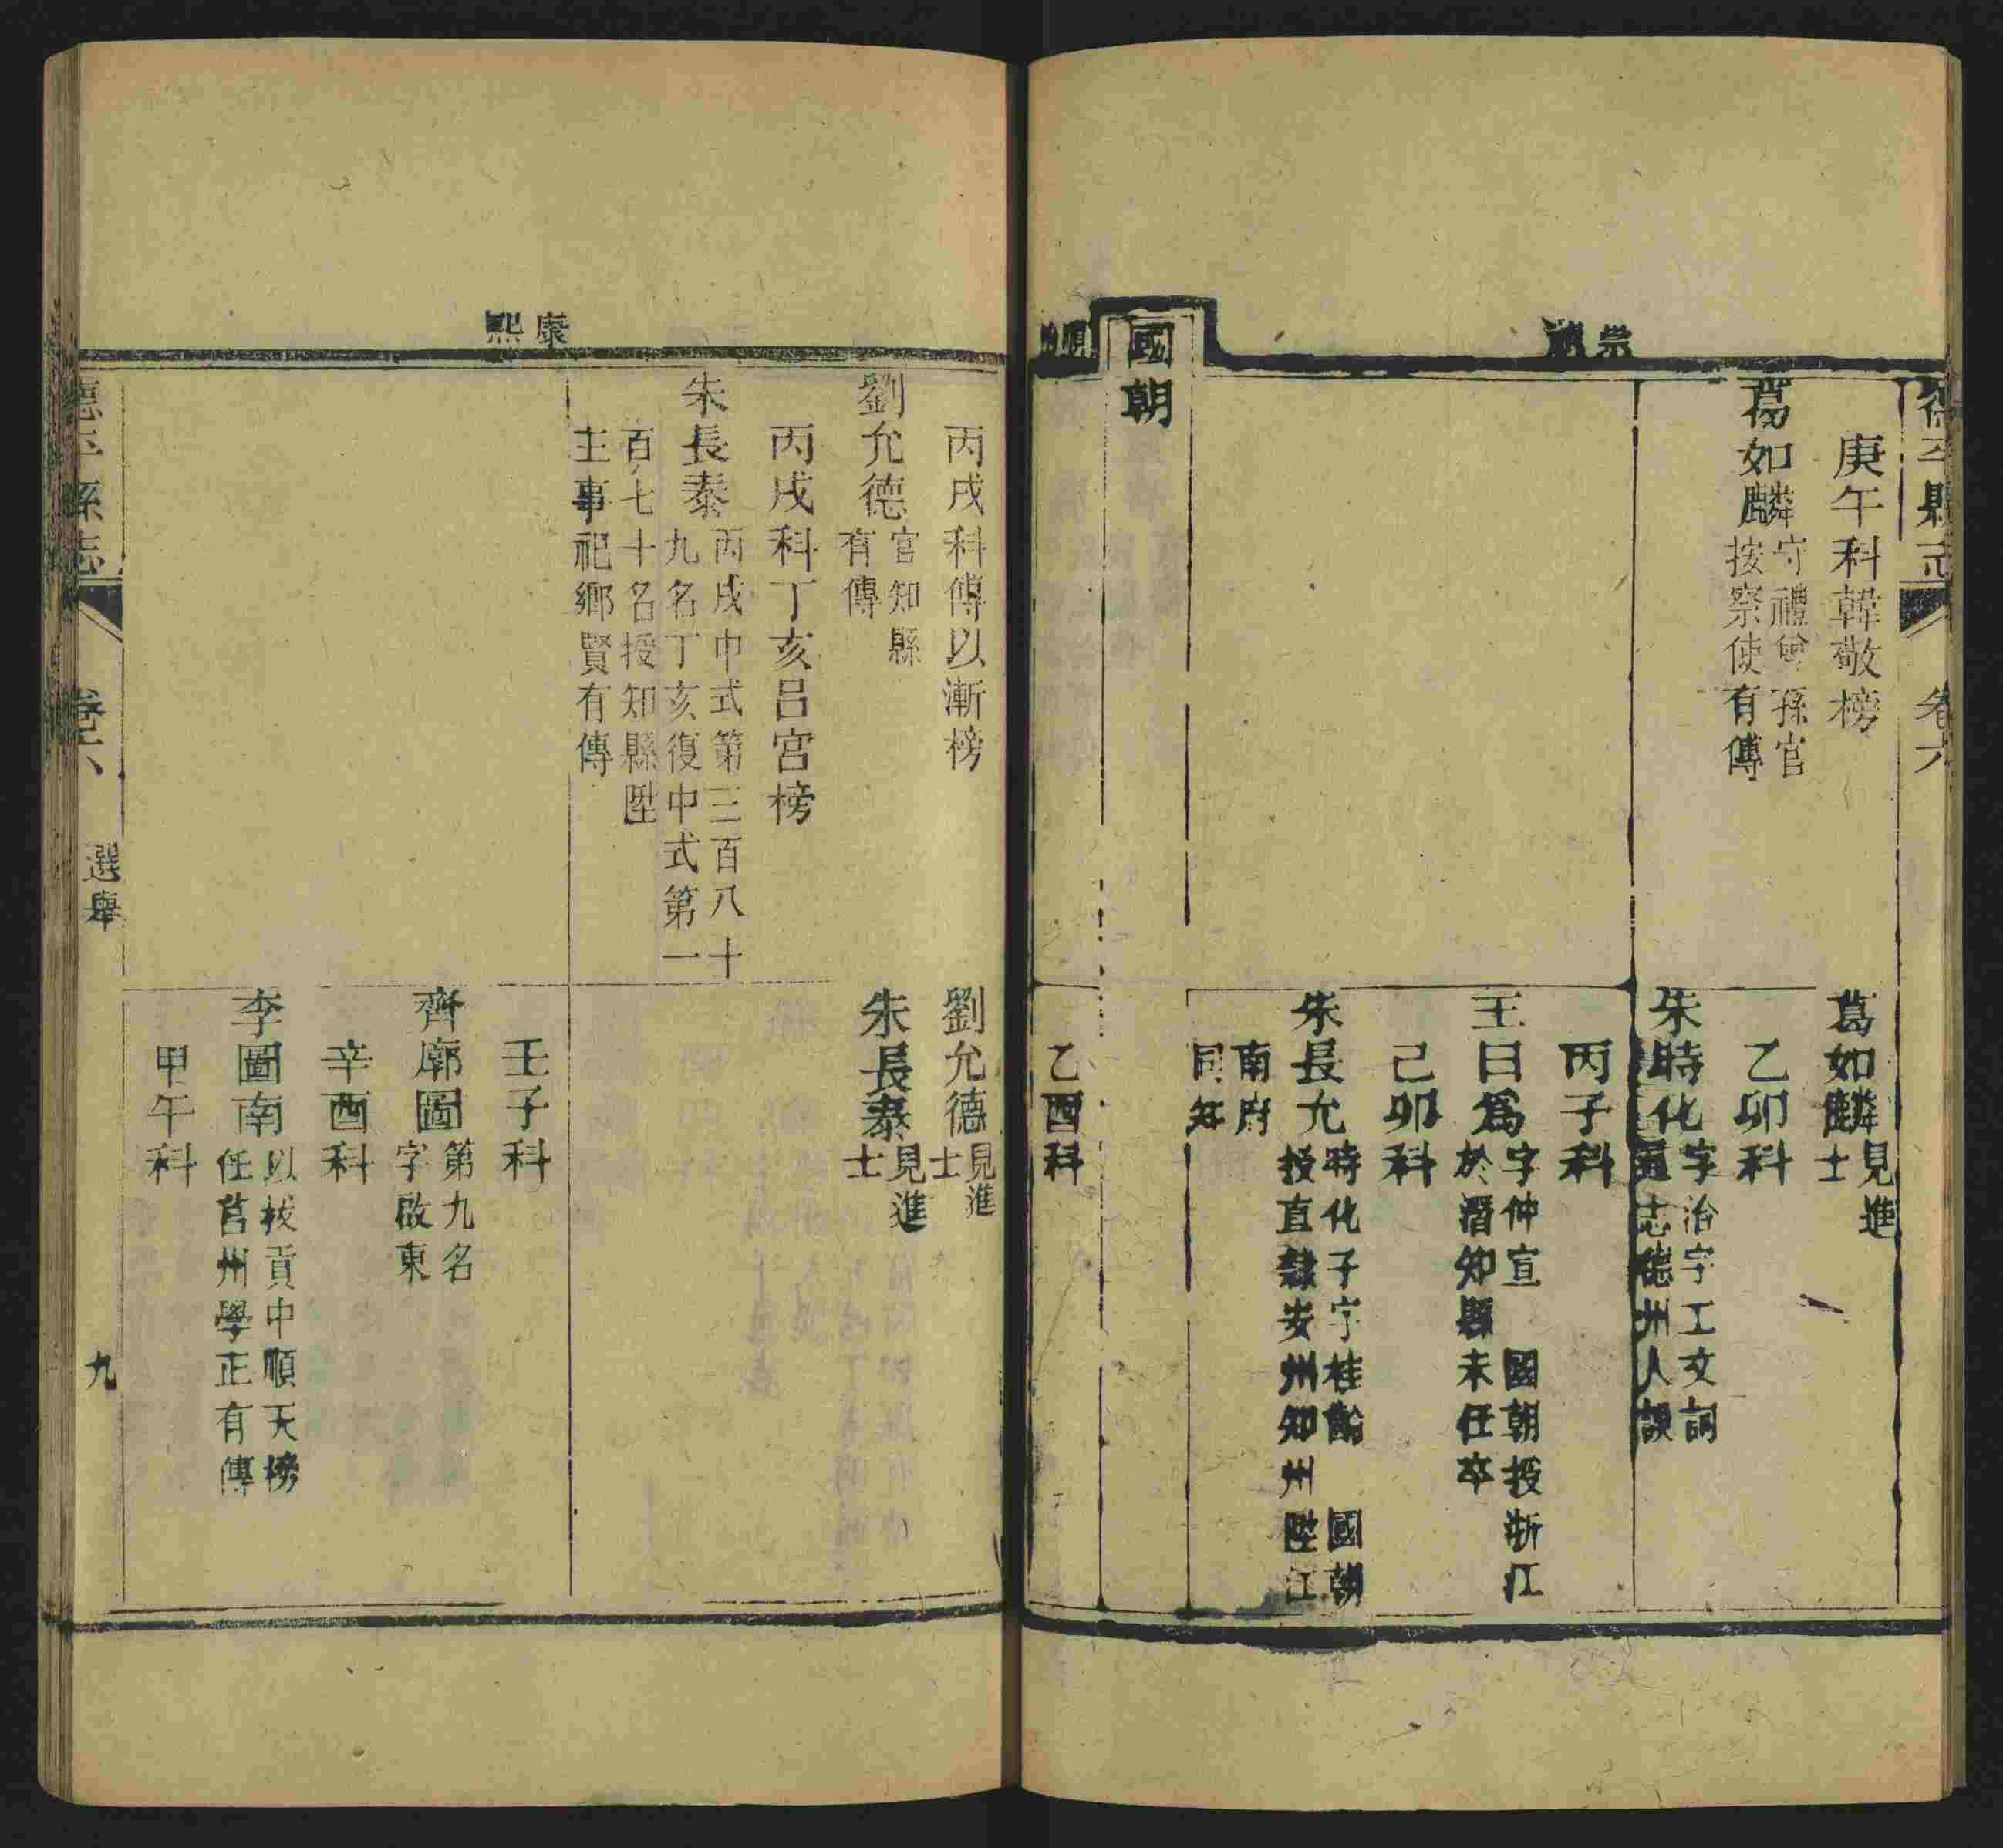 德平縣志
卷六
庚午科韓敬榜
葛如麟
守禮曾孫官
按察使有傳
葛如麟
見進
士
乙卯科
朱時化
字治宇工文詞
通志德州人誤
崇禎
丙子科
王日為
字仲宣 國朝授浙江
於潛知縣未任卒
己卯科
朱長允
時化子字桂齡 國朝
授直隸安州知州陞江
南府
同知
國朝
順治
乙酉科
丙戌科傅以漸榜
劉允德
官知縣
有傳
丙戌科丁亥呂宮榜
朱長泰
丙戌中式第三百八十
九名丁亥復中式第一
百七十名授知縣陞
主事祀鄉賢有傳
劉允德
見進
士
朱長泰
見進
士
康熙
壬子科
齊廓圖
第九名
字啟東
辛酉科
李圖南
以拔貢中順天榜
任莒州學正有傳
甲午科
德平縣志
卷六
選舉
九